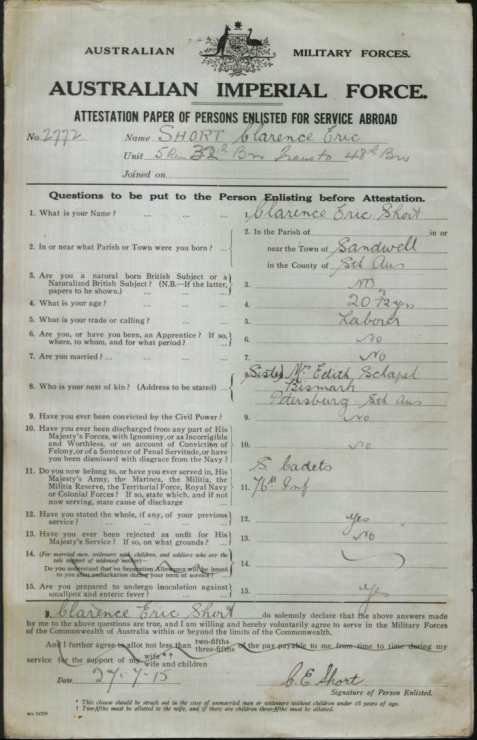 AUSTRALIAN MILITARY FORCES.
AUSTRALIAN IMPERIAL FORCE.
ATTESTATION PAPER OF PERSONS ENLISTED FOR SERVICE ABROAD
No. 2772 Name SHORT Clarence Eric
Unit 32nd Bn Trans to 48th Bn
Joined on
Questions to be put to the Person Enlisting before Attestation.
1. What is your Name? ... ... ... 1. Clarence Eric Short
2. In or near what Parish or Town were you born? ... 2. In the Parish of in or
near the Town of Sandwell
in the County of Sth Aus
3. Are you a natural born British Subject or a
Naturalized British Subject? (N.B.—If the latter,
papers to be shown.) 3. NO
4. What is your age? ... ... ... 4. 20
5. What is your trade or calling? ... ... 5. Laborer
6. Are you, or have you been, an Apprentice? If so,
where, to whom, and for what period? ... 6. No
7. Are you married? ... ... ... 7. No
8. Who is your next of kin? (Address to be stated) ... 8. Sister Mrs Edith Schapel
Bismark
Petersburg Sth Aus
9. Have you ever been convicted by the Civil Power? 9. No
10. Have you ever been discharged from any part of His
Majesty's Forces, with Ignominy, or as Incorrigible
and Worthless, or on account of Conviction of
Felony, or of a Sentence of Penal Servitude, or have
you been Dismissed with disgrace from the Navy? 10. No
11. Do you now belong to, or have you ever served in, His
Majesty's Army, the Marines, the Militia, the
Militia Reserve, the Territorial Force, Royal Navy
or Colonial Forces? If so, state which, and if not
now serving, state cause of discharge ... 11. S Cadets
76th Inf
12. Have you stated the whole, if any, of your previous
service? ... ... ... 12. Yes
13. Have you ever been rejected as unfit for His
Majesty's Service? If so, on what grounds? 13. NO
14. (For married men, widowers with children, and soldiers who are the
sole support of widowed mother—
Do you understand that no Separation Allowance will be issued
to you after embarkation during your term of service? 14.
15. Are you prepared to undergo inoculation against
smallpox and enteric fever? 15. Yes
I, Clarence Eric Short do solemnly declare that the above answers made
by me to the above questions are true, and I am willing and hereby voluntarily agree to serve in the Military Forces
of the Commonwealth of Australia within or beyond the limits of the Commonwealth.
And I further agree to allot not less than two-fifths three-fifths of the pay payable to me from time to time during my
service for the support of my wife * † wife and children
Date 27-7-15 C.E. Short
Signature of Person Enlisted.
* This clause should be struck out in the case of unmarried men or widowers without children under 18 years of age.
† Two-fifths must be allotted to the wife, and if there are children three-fifths must be allotted.